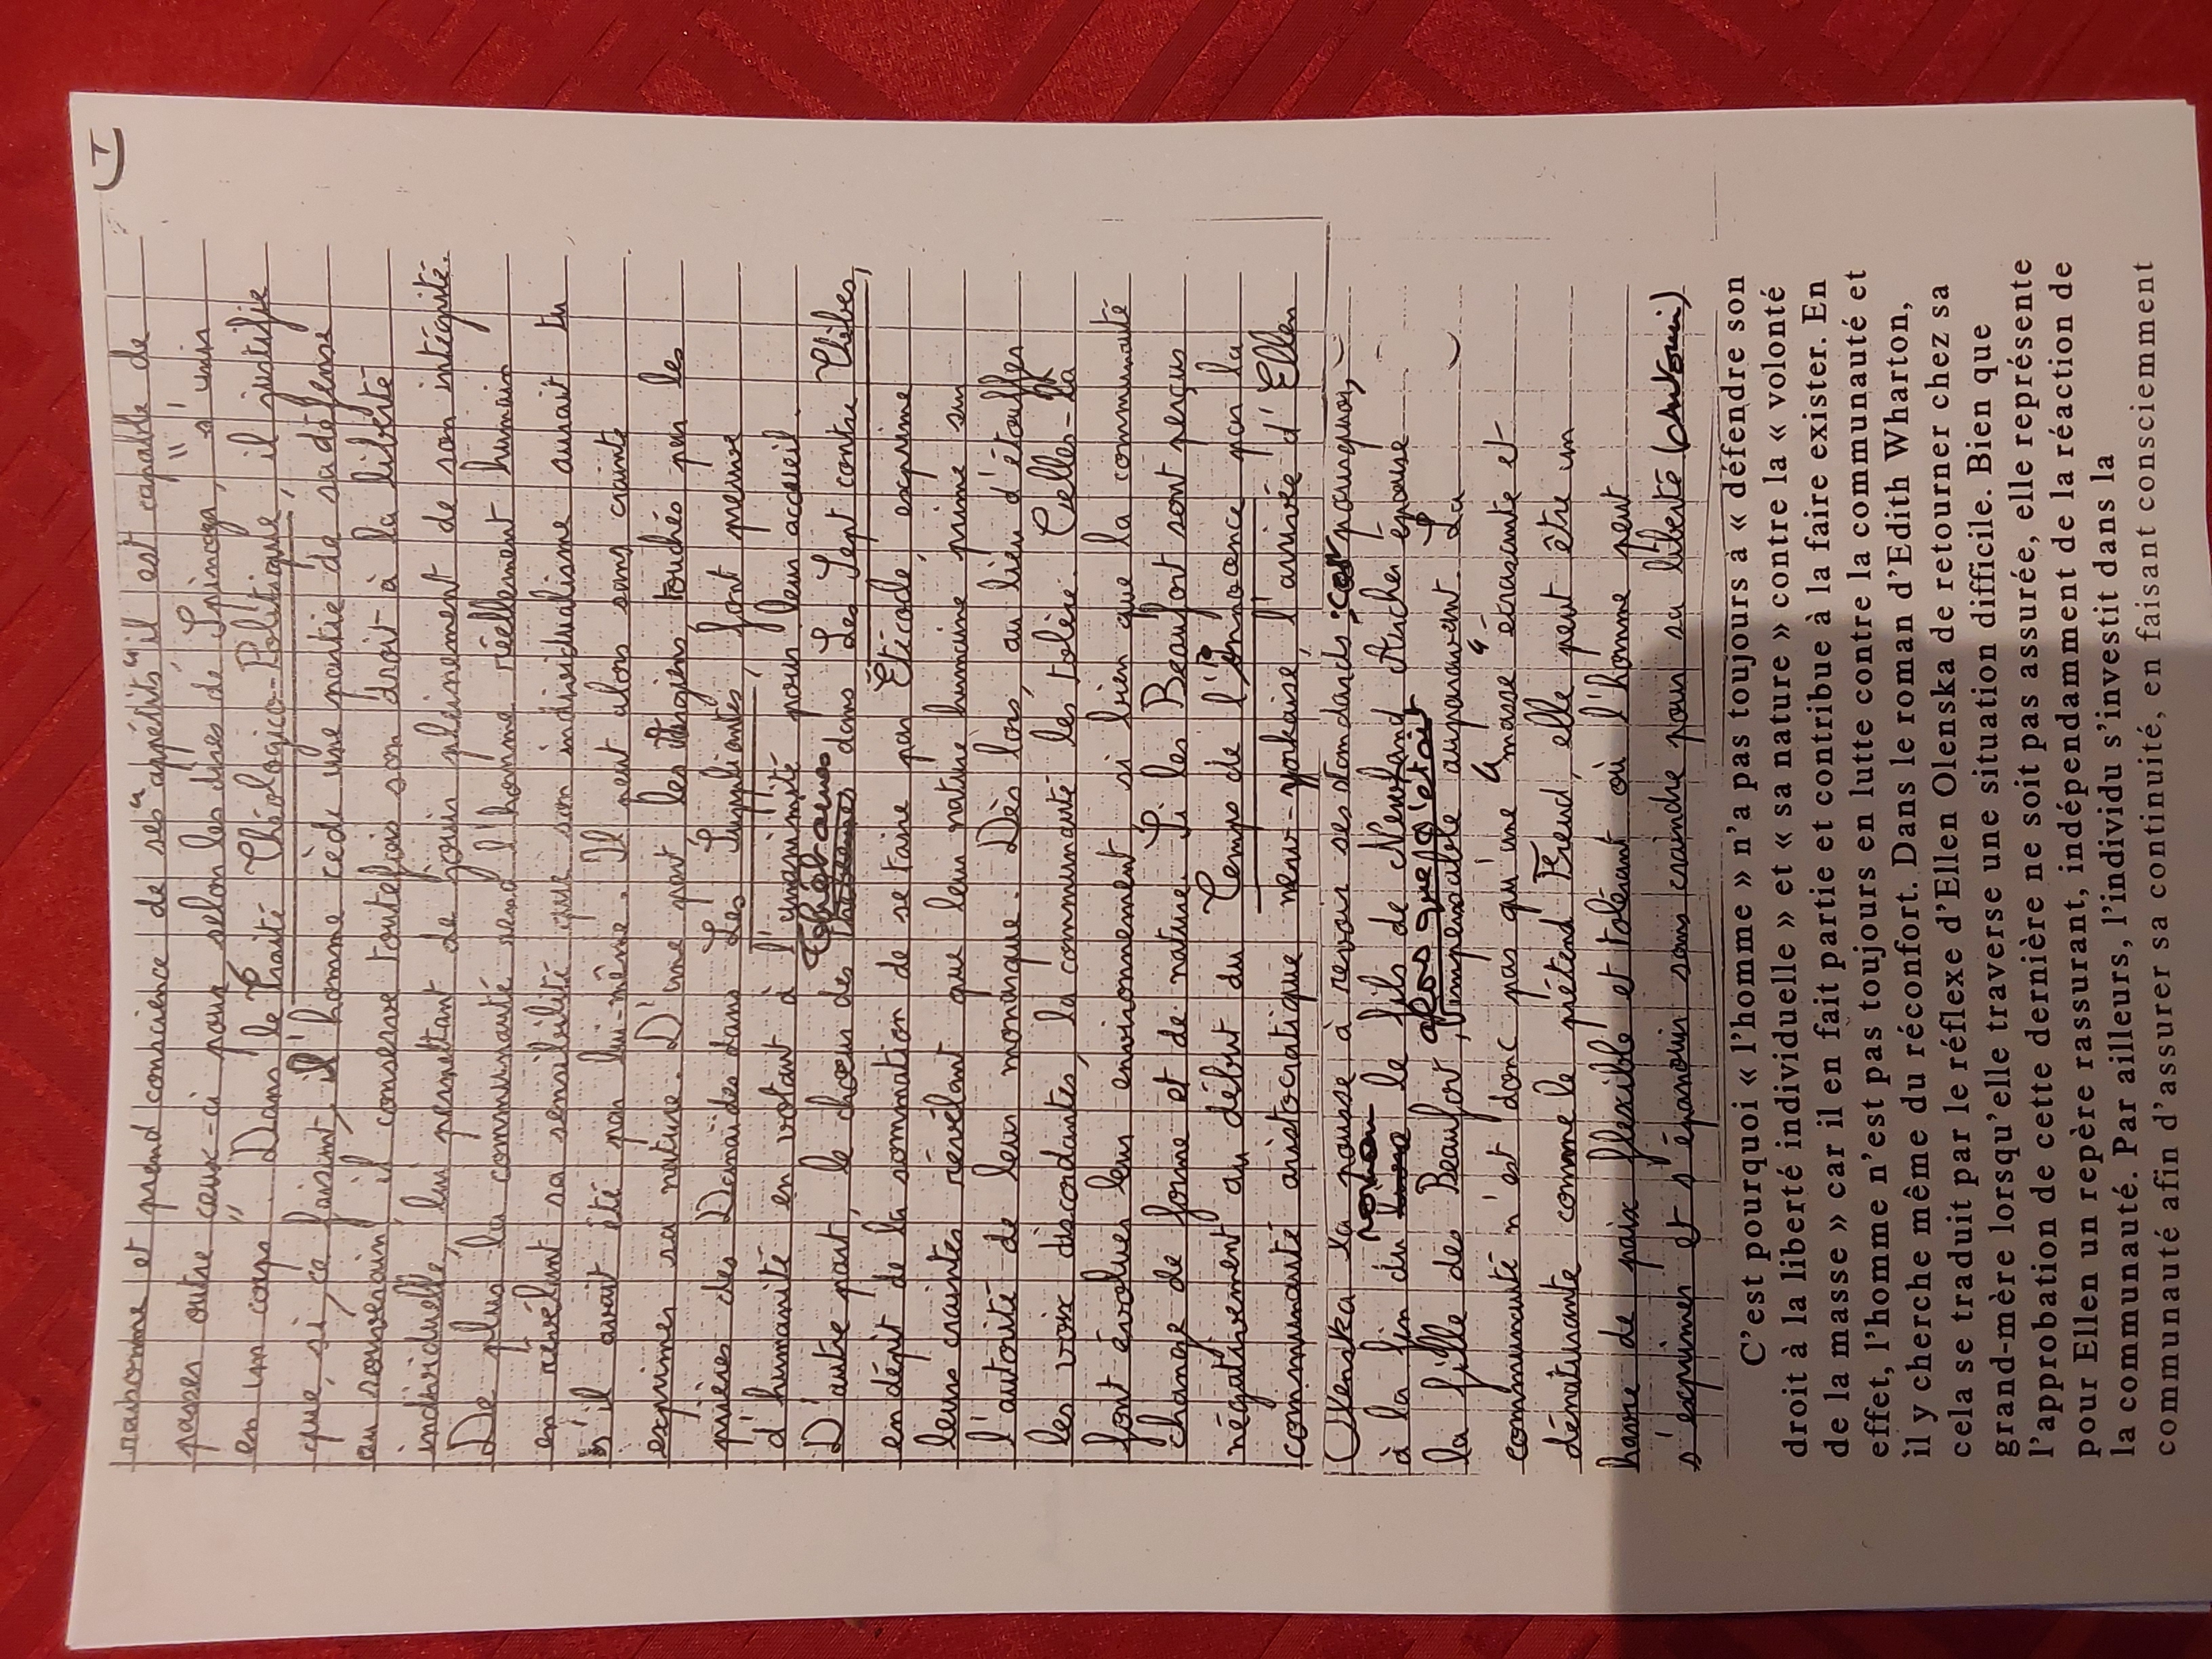 raisonne et prend conscience de ses "appétits" il est capable de
passer outre ceux-ci pour, selon les dires de Spinoza, "s'unir
en un corps". Dans le Traité Théologico-Politique, il justifie
que, si, ce faisant, l'homme cède une partie de sa défense
au souverain, il conserve toutefois son droit à la liberté
individuelle, lui permettant de jouir pleinement de son intégrité.
De plus la communauté rend l'homme réellement humain
en révélant sa sensibilité que son individualisme aurait tu
s'il avait été par lui-même. Il peut alors sans crainte
exprimer sa nature. D'une part les Argiens touchés par les
prières des Danaïdes dans Les Suppliantes, font preuve
d'humanité en votant à l'unanimité pour leur accueil.
D'autre part, le chœur des Thébaines dans Les Sept contre Thèbes,
en dépit de la sommation de se taire par Étéocle, exprime
leurs craintes révélant que leur nature humaine prime sur
l'autorité de leur monarque. Dès lors, au lieu d'étouffer
les voix discordantes, la communauté les tolère. Celles-là
font évoluer leur environnement si bien que la communauté
change de forme et de nature. Si les Beaufort sont perçus
négativement au début du Temps de l'innocence par la
communauté aristocratique new-yorkaise, l'arrivée d'Ellen
Olenska la pousse à revoir ses standards pourquoi,
à la fin du roman le fils de Newland Archer épouse
la fille des Beaufort, alors que c'était impensable auparavant. La
communauté n'est donc pas qu'une "masse" écrasante et
dénaturante comme le prétend Freud, elle peut être un
havre de paix flexible et tolérant où l'homme peut
s'exprimer et s'épanouir sans craindre pour sa liberté
C'est pourquoi « l'homme » n'a pas toujours à « défendre son
droit à la liberté individuelle » et « sa nature » contre la « volonté
de la masse » car il en fait partie et contribue à la faire exister. En
effet, l'homme n'est pas toujours en lutte contre la communauté et
il y cherche même du réconfort. Dans le roman d'Edith Wharton,
cela se traduit par le réflexe d'Ellen Olenska de retourner chez sa
grand-mère lorsqu'elle traverse une situation difficile. Bien que
l'approbation de cette dernière ne soit pas assurée, elle représente
pour Ellen un repère rassurant, indépendamment de la réaction de
la communauté. Par ailleurs, l'individu s'investit dans la
communauté afin d'assurer sa continuité, en faisant consciemment